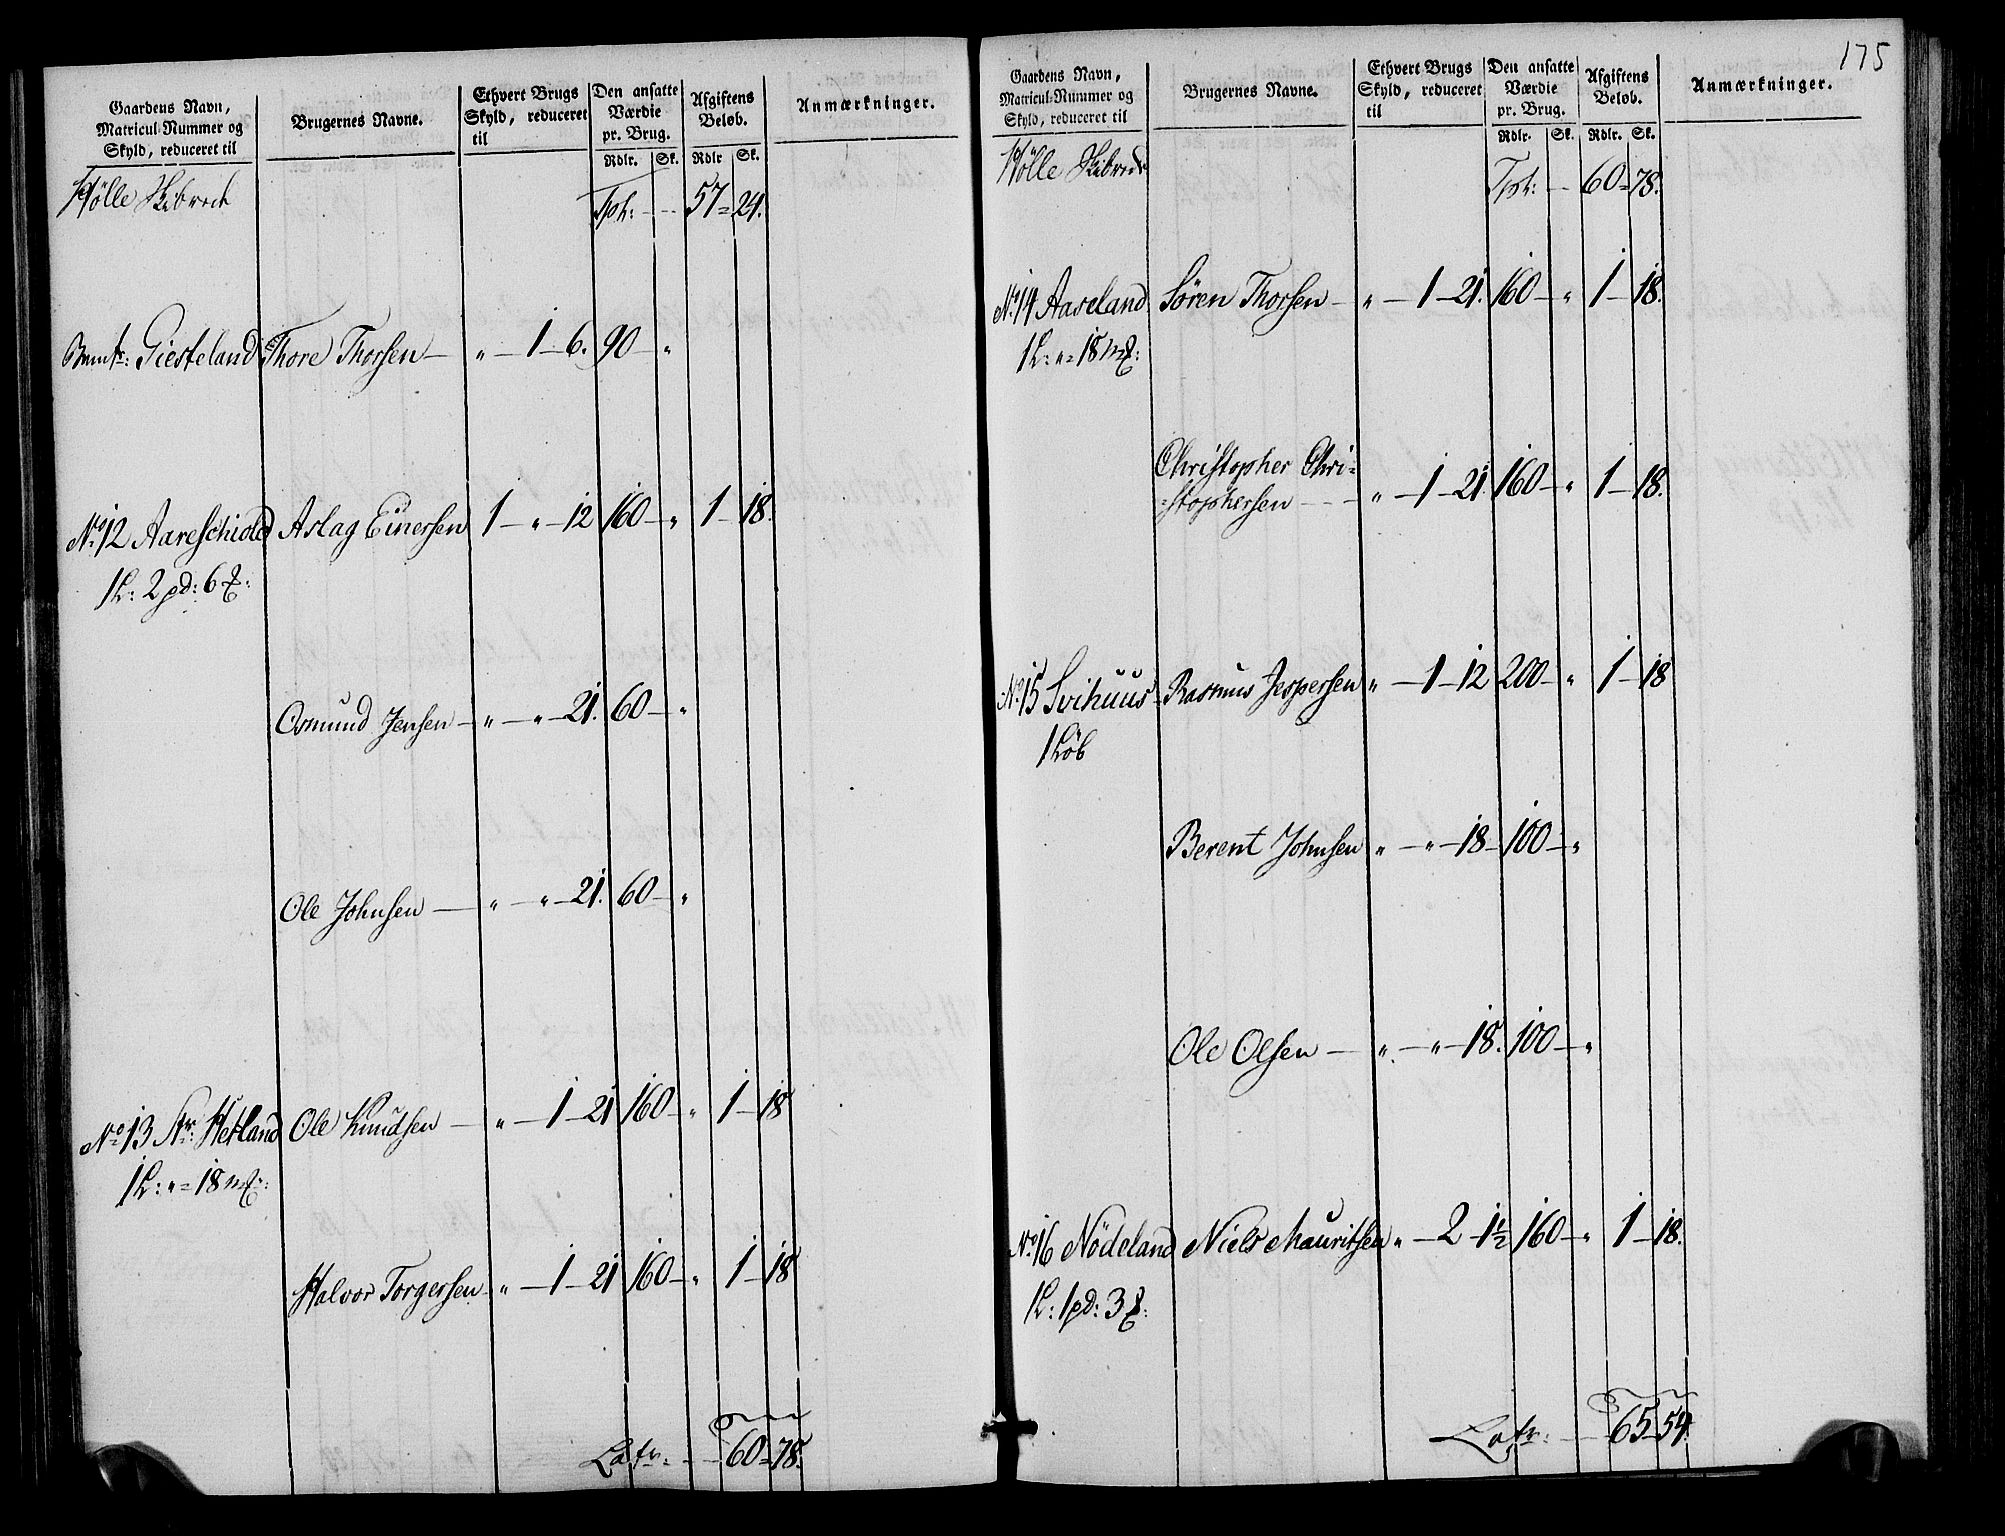 Gaardens Navn,
Matricul-Nummer og
Skyld, reduceret til
Brugernes Navne.
Ethvert Brugs
Skyld, reduceret
til
Den ansatte
Værdie
pr. Brug.
Rdlr. Sk.
Afgiftens
Beløb.
Rdlr Sk.
Anmærkninger.
Hølle Skibred
Tpt: 57 = 24.
Giesteland Thore Thorsen — „ — 1 — 6. 90 — „
No 12 Aareschiold Aslag Einersen 1 — „ — 12 160 — „ 1 — 18.
1 L: 2 pd: 6
Osmund Jensen — „ — „ — 21. 60 — „
Ole Johnsen — „ — „ — 21. 60 — „
No 13 Str: Hetland Ole Knudsen — „ — 1 — 21 160 — „ 1 — 18
1 L: „ = 18 m
Halvor Torgersen — „ — 1 — 21 160 — „ 1 — 18
Latr: — 60 = 78.
175
Gaardens Navn,
Matricul-Nummer og
Skyld, reduceret til
Brugernes Navne.
Ethvert Brugs
Skyld, reduceret
til
Den ansatte
Værdie
pr. Brug.
Rdlr. Sk.
Afgiftens
Beløb.
Rdlr. Sk.
Anmærkninger.
Hølle Skibred
Tpt: — 60 = 78.
No 14 Aaseland Søren Thorsen — „ — 1 — 21. 160 — „ 1 — 18.
1 L: „ = 18 m
Christopher Chri=
=stophersen — „ — 1 — 21. 160 — „ 1 — 18.
No 15 Svihuus Rasmus Jespersen „ — 1 — 12 200 — „ 1 — 18
1 Løb
Berent Johnsen „ — „ — 18 — 100 — „
Ole Olsen — „ — „ — 18. 100 — „
No 16 Nödeland Niels Mauritsen „ — 2 — 1½ 160 — „ 1 — 18.
1 L: 1 pd: 3
Latr: — 65 — 54.